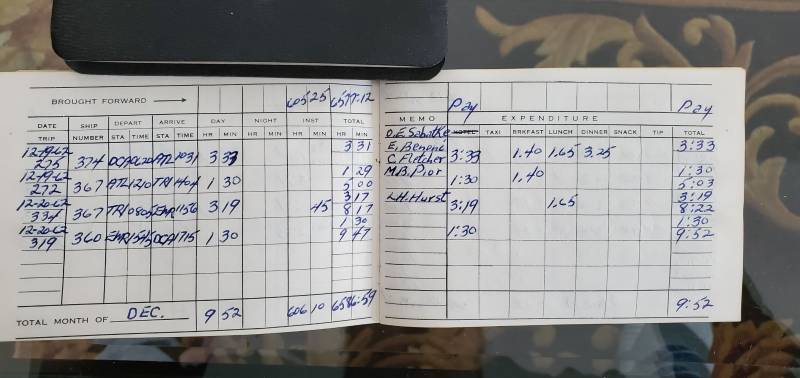 BROUGHT FORWARD → 605 25 6577:12
DATE SHIP DEPART ARRIVE DAY NIGHT INST TOTAL
TRIP NUMBER STA TIME STA TIME HR MIN HR MIN HR MIN HR MIN
12-19-62 3 31
275 374 DCA 0620 ATL 1031 3 33
12-19-62 1 29
272 367 ATL 1210 TRI 1404 1 30 5 00
12-20-62 3 17
334 367 TRI 0805 EWR 1156 3 19 45 8 17
12-20-62 1 30
319 360 EWR 1545 DCA 1715 1 30 9 47
TOTAL MONTH OF DEC. 9 52 606 10 6586:59
Pay Pay
MEMO EXPENDITURE
HOTEL TAXI BRKFAST LUNCH DINNER SNACK TIP TOTAL
D.E. Sabatke
E. 3:33
C. Fletcher 3:33 1.40 1.65 3.25
M.B. Pior 1:30
1:30 1.40 5:03
L.H. Hurst 3:19
3:19 1.65 8:22
1:30
1:30 9:52
9:52